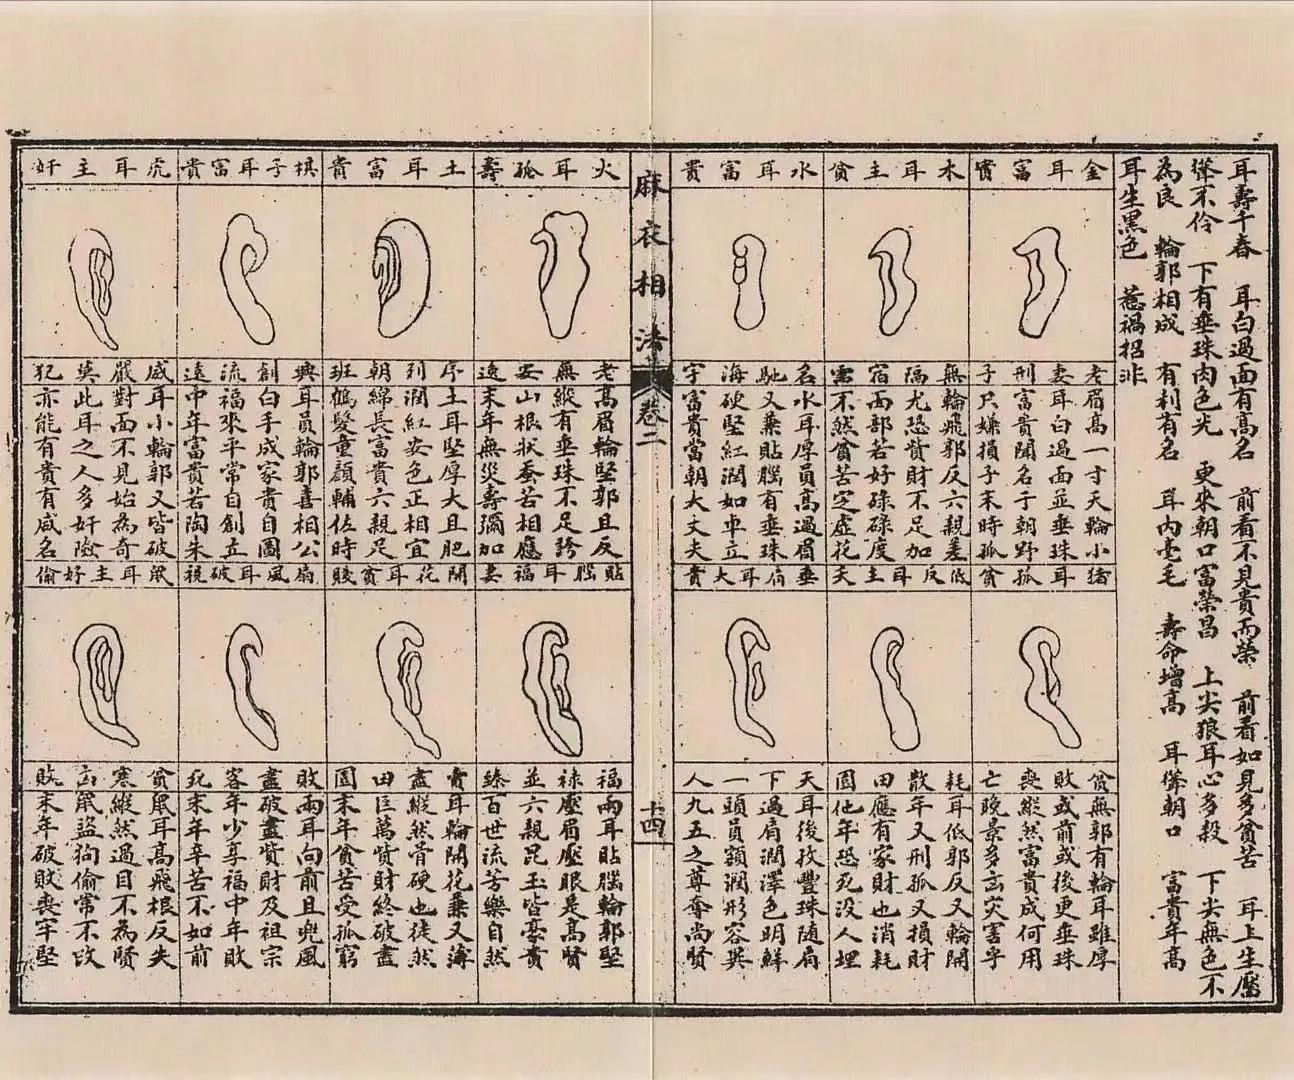 耳壽千春 耳白過面有高名 前看不見貴而榮 前看如見多貧苦 耳上生靨
聳不伶 下有垂珠肉色光 更來朝口富榮昌 上尖狼耳心多殺 下尖無色不
為良 輪郭相成 有利有名 耳內毫毛 壽命增高 耳聳朝口 富貴年高
耳生黑色 惹禍招非
金耳富貴
老眉高一寸天輪小
妻耳白過面並垂珠
刑富貴聞名于朝野
子只嫌損子末時孤
木耳主貧
無輪飛郭反六親羞
隔尤恐貲財不足加
宿面部若好碌碌度
不然貧苦定虛花
水耳富貴
名水耳厚員高過眉
馳又兼貼腦有垂珠
海硬堅紅潤如車立
宇富貴當朝大丈夫
猪耳孤貧
貧無郭有輪耳雖厚
敗或前或後更垂珠
喪縱然富貴成何用
亡晚景多凶災害乎
低反耳主夭
耗耳低郭反又輪開
散年又刑孤又損財
田應有家財也消耗
園他年恐死没人埋
垂肩耳大貴
天耳後豐珠随肩
下過肩潤澤色明鮮
一頭員額潤形容異
人九五之尊奪尚賢
麻衣相法
卷二
十四
火耳孤壽
老高眉輪堅郭且反
無縱有垂珠不足誇
安山根狀蚕若相應
遠末年無災壽彌加
土耳富貴
序土耳堅厚大且肥
列潤紅安色正相宜
朝綿長富貴六親足
班鶴髮童顏輔佐時
棋子耳富貴
興耳員輪郭喜相公
創白手成家貴自圖
流福來平常自創立
遠中年富貴若陶朱
虎耳主奸
威耳小輪郭又皆破
嚴對面不見始為奇
莫此耳之人多奸險
犯亦能有貴有咸名
貼腦耳福妻
福兩耳貼腦輪郭堅
祿壓眉壓眼是高賢
並六親昆玉皆豪貴
臻百世流芳樂自然
開花耳貧賤
賣耳輪開花兼又薄
盡縱然骨硬也徒然
田巨萬貲財終破盡
園末年貧苦受孤窮
扇風耳破祝
敗兩耳向前且兜風
盡破盡貲財及祖宗
客年少享福中年敗
死末年辛苦不如前
鼠耳主好偷
貧鼠耳高飛根反失
寒縱然過目不為賢
凶鼠盜狗偷常不改
敗末年破敗喪牢堅